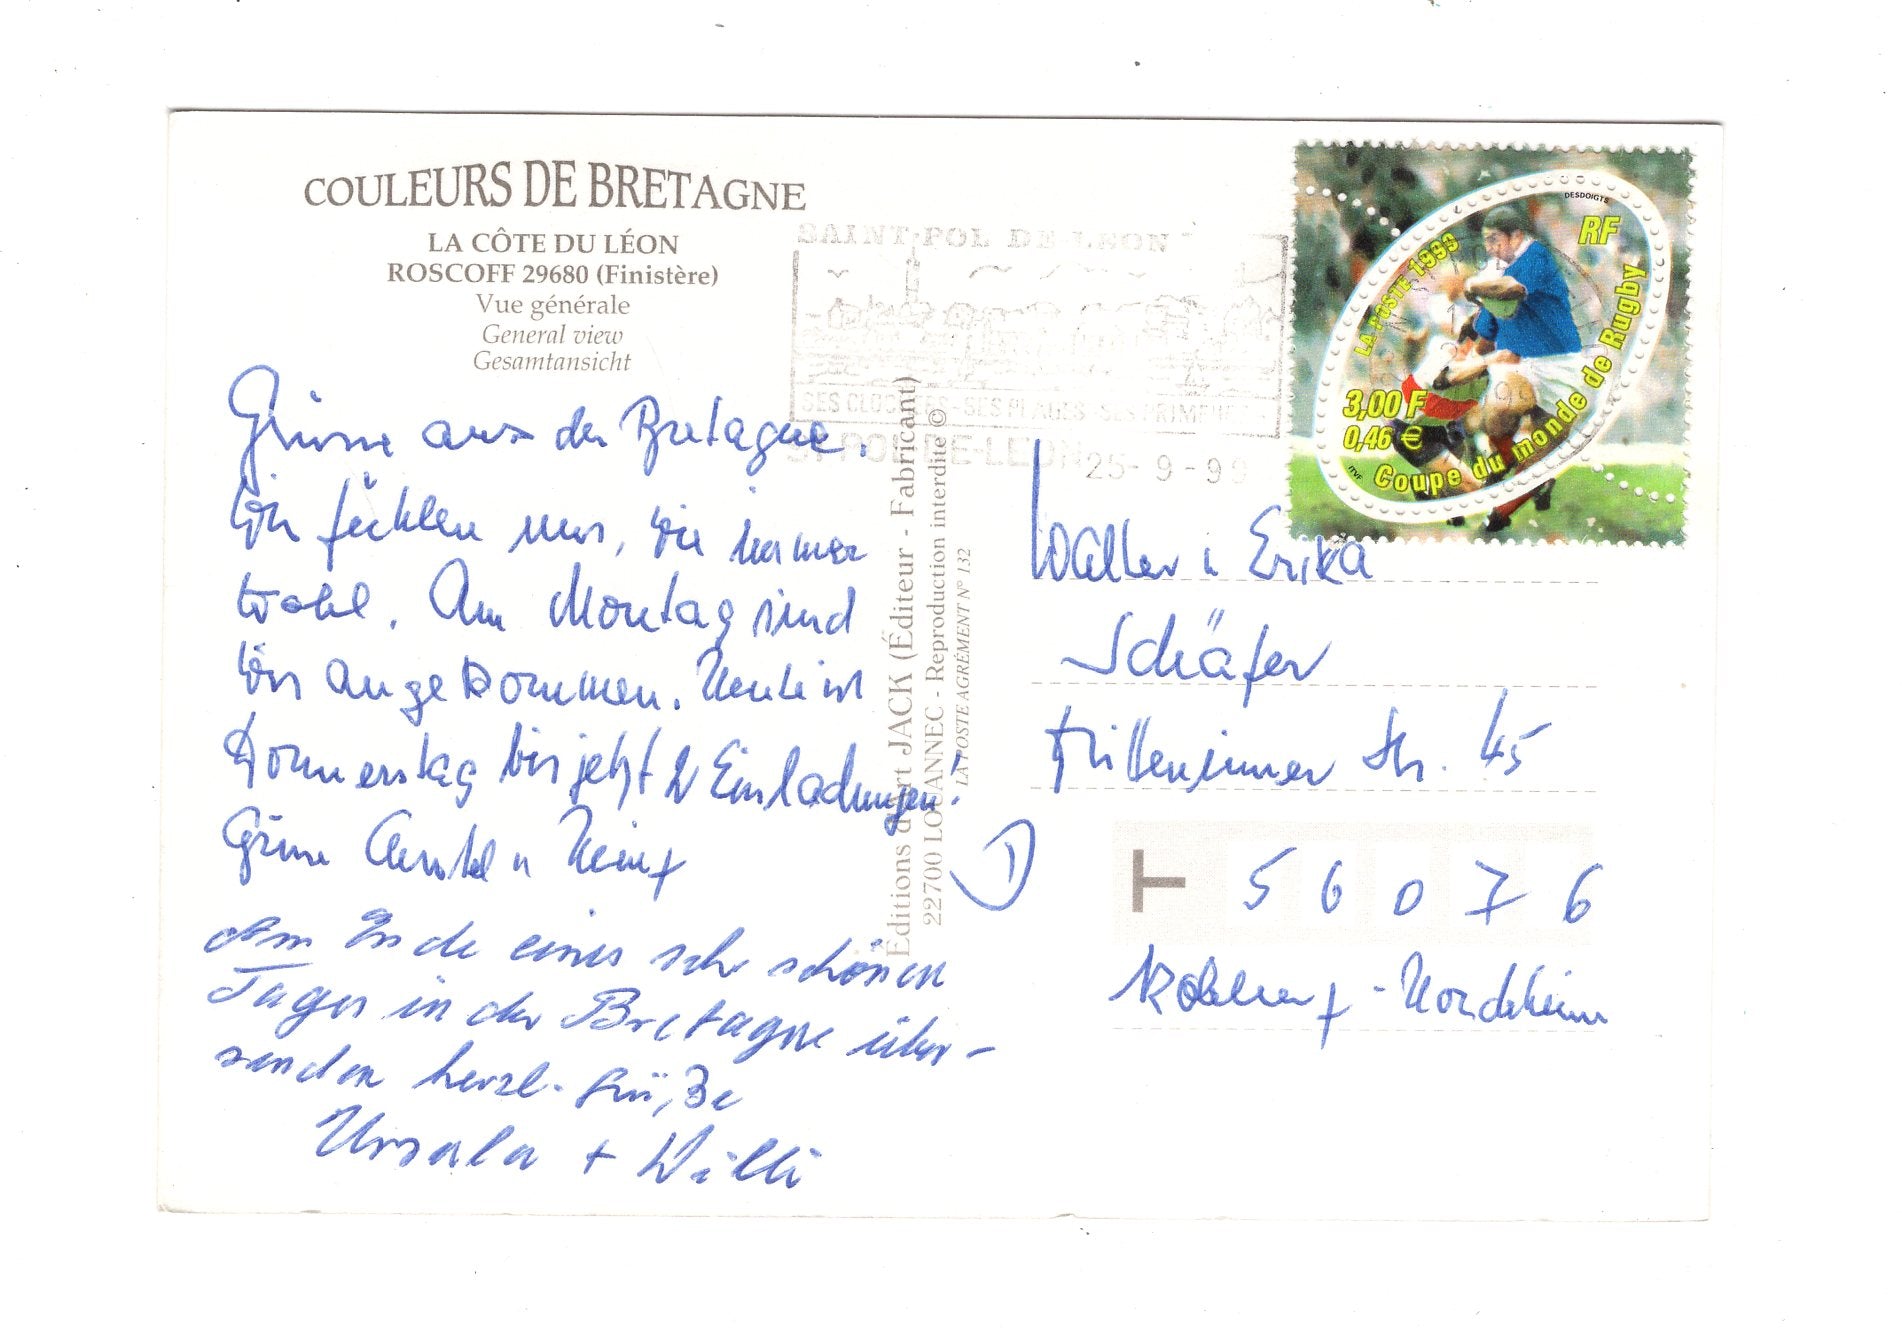 COULEURS DE BRETAGNE
LA CÔTE DU LÉON
ROSCOFF 29680 (Finistère)
Vue générale
General view
Gesamtansicht
Grüsse aus der Bretagne.
Wir fühlen uns, wie immer
wohl. Am Montag sind
wir angekommen. Heute ist
Donnerstag bis jetzt 2 Einladungen!
Grüsse Christel u Heinz
Am Ende eines sehr schönen
Tages in der Bretagne über-
senden herzl. Grüße
Ursula + Willi
Éditions d'Art JACK (Éditeur - Fabricant)
22700 LOUANNEC - Reproduction interdite ©
LA POSTE AGRÉMENT N° 132
SAINT-POL DE-LEON
SES CLOCHERS-SES PLAGES-SES PRIMEURS
ST POL-DE-LEON 25-9-99
DESDOIGTS
RF
LA POSTE 1999
3,00 F
0,46 €
ITVF
Coupe du monde de Rugby
Walter u Erika
Schäfer
Str. 45
D
56076
Koblenz-Horchheim